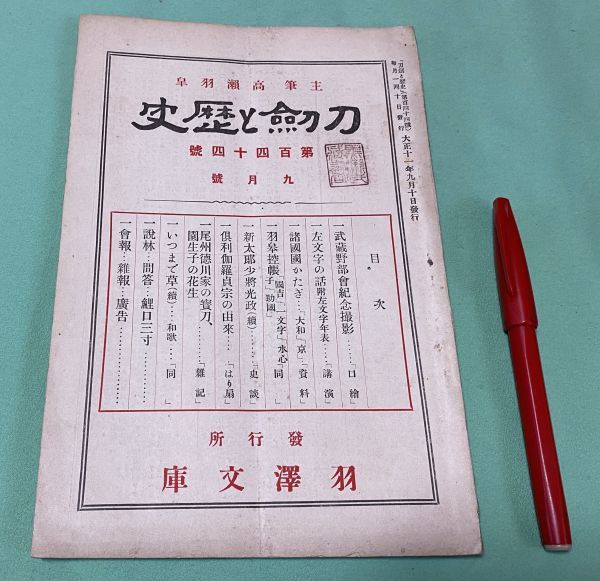 「刀劍と歷史」(第百四十四號)
每月一回十日發行
大正十一年九月十日發行
主筆高瀨羽皐
刀劍と歷史
第百四十四號
九月號
目次
一武藏野部會紀念撮影……口繪
一左文字の話附左文字年表…「講演」
一諸國國かたぎ…「大和」「京」「資料」
一羽皐控帳「國吉」「一文字」「水心子」「助國」「同」
一新太郎少將光政(續)……「史談」
一俱利伽羅貞宗の由來…「はり扇」
一尾州德川家の寶刀、園生子の花生……「雜記」
一いつまで草(續)…和歌…「同」
一說林…問答…鯉口三寸…………
一會報…雜報…廣告…………
發行所
羽澤文庫